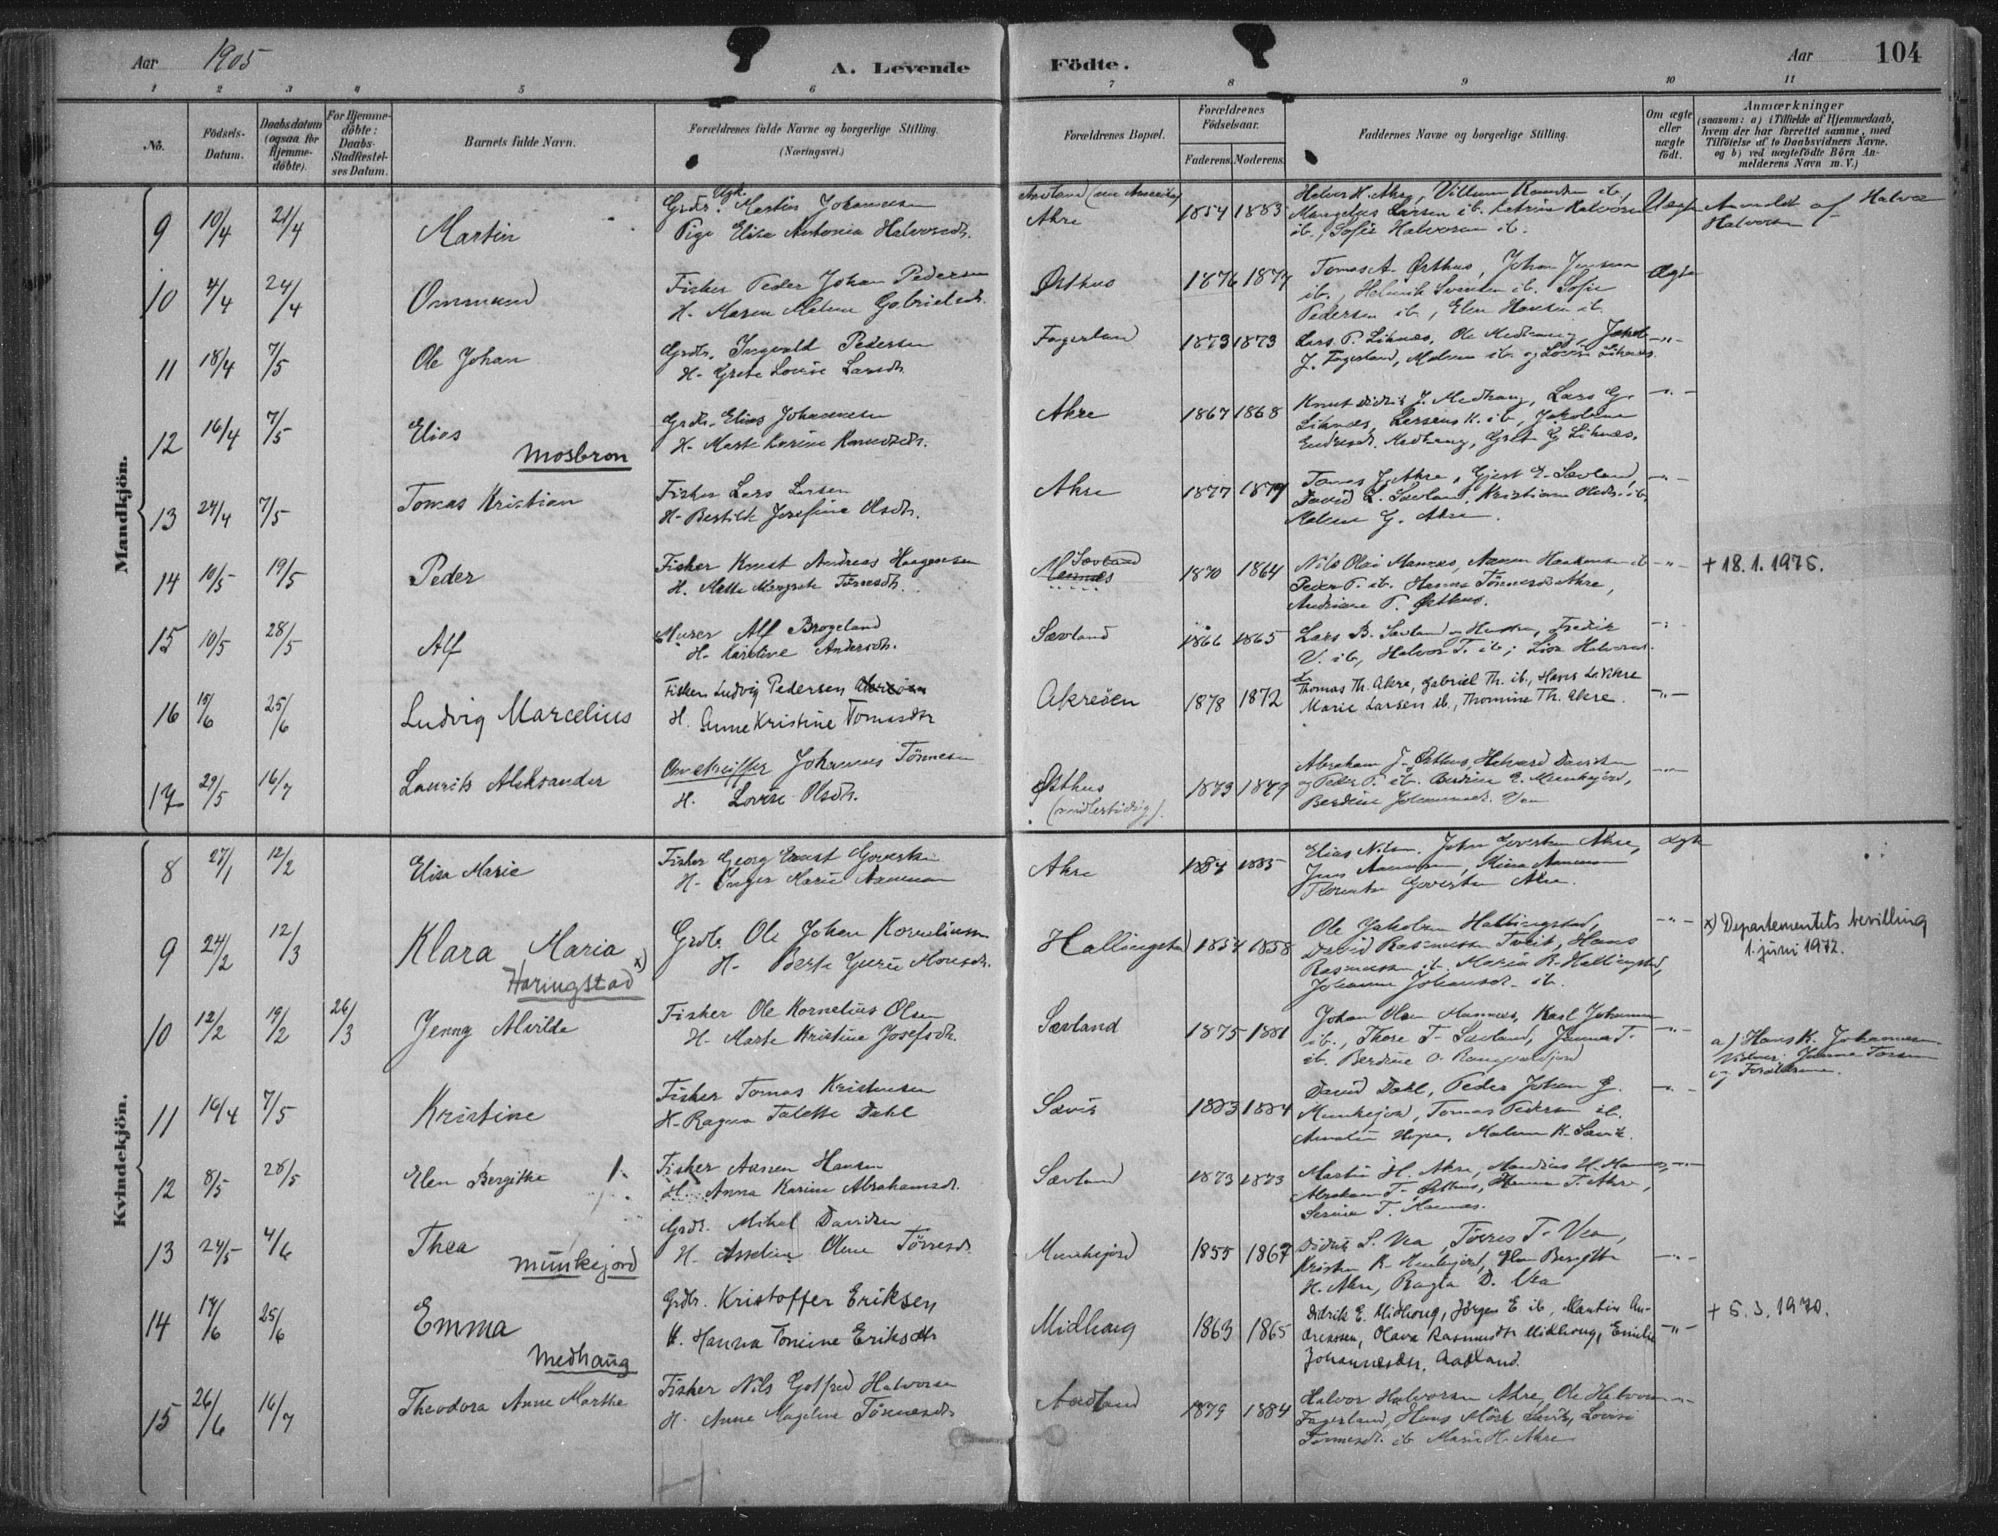 Aar 1905
A. Levende Födte.
Aar 104
1 2 3 4 5 6 7 8 9 10 11
No.
Födsels-Datum.
Daabsdatum (ogsaa for Hjemme-döbte).
For Hjemme-döbte: Daabs-Stadfæstel-ses Datum.
Barnets fulde Navn.
Forældrenes fulde Navne og borgerlige Stilling.
(Næringsvei.)
Forældrenes Bopæl.
Forældrenes Födselsaar.
Faderens. Moderens.
Faddernes Navne og borgerlige Stilling.
Om ægte eller uægte födt.
Anmærkninger
(saasom: a) i Tilfælde af Hjemmedaab, hvem der har forrettet samme, med Tilföielse af to Daabsvidners Navne, og b) ved uægtefödte Börn An-melderens Navn m. V.)
Mandkjön.
9 10/4 21/4 Martin
Grdr. Ugk. Martin Johannesen
Pige Elisa Antonia Halvorsdtr.
Akre 1854 1883
Halvor K. Akre, Villum Knudsen ib,
ib, Sofie Halvorsen ib.
Uægte
Anmeldt af Halvor
Halvorsen
10 4/4 24/4 Ommund
Fisker Peder Johan Pedersen
H. Maren Malene Gabrielsdr.
Østhus 1876 1877
Tomas A. Østhus, Johan Jensen
ib., Helmik Svensen ib. Sofie
Pedersen ib, Elen Hansen ib.
Ægte
11 18/4 7/5 Ole Johan
Grdr. Ingvald Pedersen
H. Grete Lovise Larsdtr.
Fagerland 1873 1873
Lars P. Liknæs, Ole Medhaug, Jakob
J. Fagerland, Malene ib og Lovise Liknæs.
-"-
12 16/4 7/5 Elias
Mosbron
Grdr. Elias Johannesen
H. Marte Karine Knudsdtr.
Akre 1867 1868
Knut Didrik J. Medhaug, Lars G.
Liknæs, K. ib, Jakobine
Medhaug, G. Liknæs.
-"-
13 24/4 7/5 Tomas Kristian
Fisker Lars Larsen
H. Josefine Olsdtr.
Akre 1877 1877
Tomas J. Akre, Gjert E. Sævland,
David L. Sævland, Kristiane Olsdr. ib,
Malene G. Akre.
-"-
14 10/5 19/5 Peder
Fisker Knut Andreas Haagensen
H. Mette Margrete Tönnesdtr.
Sævland
Mannes
1870 1864
Nils Olai Mannes, Aanen Haakonsen ib
Peder P. ib. Hanna Tönnesdr. Akre,
Andriane P. Østhus.
-"-
+ 18.1.1975.
15 10/5 28/5 Alf
Murer Alf Brogeland
H. Karoline Andersdtr.
Sævland 1866 1865
Lars B. Sævland og Hustru, Fredrik
V. ib, Halvor T. ib, Lisa Halvorsd.
-"-
16 15/6 25/6 Ludvig Marcelius
Fisker Ludvig Pedersen
H. Anne Kristine Tomasdtr
Akreöen 1878 1872
Thomas Th. Akre, Gabriel Th. ib, Hans L. Akre
Marie Larsen ib, Thomine Th. Akre.
-"-
17 29/5 16/7 Laurits Aleksander
Johannes Tönnesen
H. Lovise Olsdtr.
Østhus
(midlertidig).
1873 1879
Abraham J. Østhus, Halvard Davidsen
og Peder P. ib. Berdine E. Munkejord,
Berdine Johannesd. Vea
-"-
Kvindekjön.
8 27/1 12/2 Elisa Marie
Fisker Georg Ernst Govertsen
H. Inger Marie Aanensen
Akre 1884 1885
Elias Nilsen, John Govertsen Akre,
Jens Aanensen, Stina Aanensen
Govertsen Akre.
Ægte
9 24/2 12/3 Klara Maria
Haringstad x)
Grdr. Ole Johan Korneliusen
H. Berte Guru Monsdr.
Hallingstad 1854 1858
Ole Jakobsen Hallingstad,
David Rasmussen Tveit, Hans
Rasmussen ib. Maria R. Hallingstad,
Johanne Johansdr. ib.
-"-
x) Departementets bevilling
1. juni 1972.
10 12/2 19/2 26/3 Jenny Alvilde
Fisker Ole Kornelius Olsen
H. Marte Kristine Josefsdtr.
Sævland 1875 1881
Johan Olsen Mannes, Karl Johannesen
ib., Thore T. Sævland, Jenma T.
ib. Berdine O.
-"-
a) Hans K. Johannesen.
Vidner: Torsen
og Forældrene.
11 16/4 7/5 Kristine
Fisker Tomas Kristensen
H. Ragna Talette Dahl
Sævik 1883 1884
David Dahl, Peder Johan G.
Munkejord, Tomas Pedersen ib.
Amalie Hope, Malene K. Sævik.
-"-
12 8/5 28/5 Elen Bergithe
Fisker Aanen Hansen
H. Anna Karine Abrahamsdr.
Sævland 1873 1873
Martin H. Akre, H. Mannes,
Abraham T. Østhus, Hanna T. Akre,
Serine T.
-"-
13 24/5 4/6 Thea
Munkejord
Grdr. Mikal Davidsen
H. Asseline Oline Törresdr.
Munkejord 1855 1867
Didrik S. Vea, Törres T. Vea,
Kristen R. Munkejord, Elen Bergitte
H. Akre, Ragla D. Vea
-"-
14 14/6 25/6 Emma
Medhaug
Grdbr. Kristoffer Eriksen
H. Hanna Tomine Eriksdtr
Midhaug 1863 1865
Didrik E. Midhoug, Jörgen E. ib, Martin An-
dreassen, Olava Rasmusdtr Midhoug, Emilie
Johannesdtr. Aadland.
-"-
+ 5.3.1970.
15 26/6 16/7 Theodora Anne Marthe
Fisker Nils Gotfred Halvorsen
H. Anne Magline Tönnesdtr
Aadland 1879 1884
Halvor Halvorsen Akre, Ole Halvorsen
Fagerland, Hans Mörk Sævik, Lovise
Tönnesdr. ib Marie H. Akre
-"-